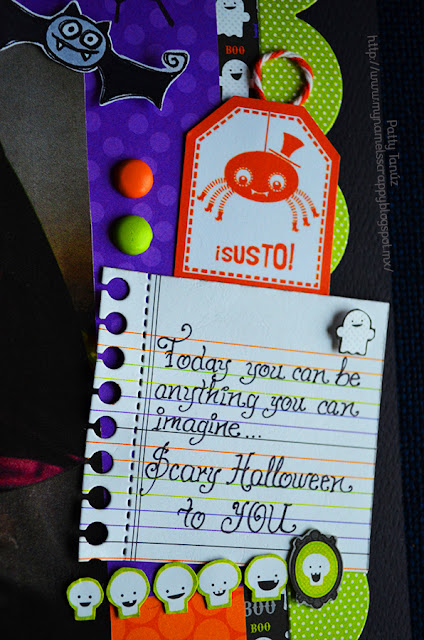 BOO
¡SUSTO!
Today you can be
anything you can
imagine...
Scary Halloween
to YOU
BOO
BOO
Patty Tanúz
http://www.mynameisscrappy.blogspot.mx/